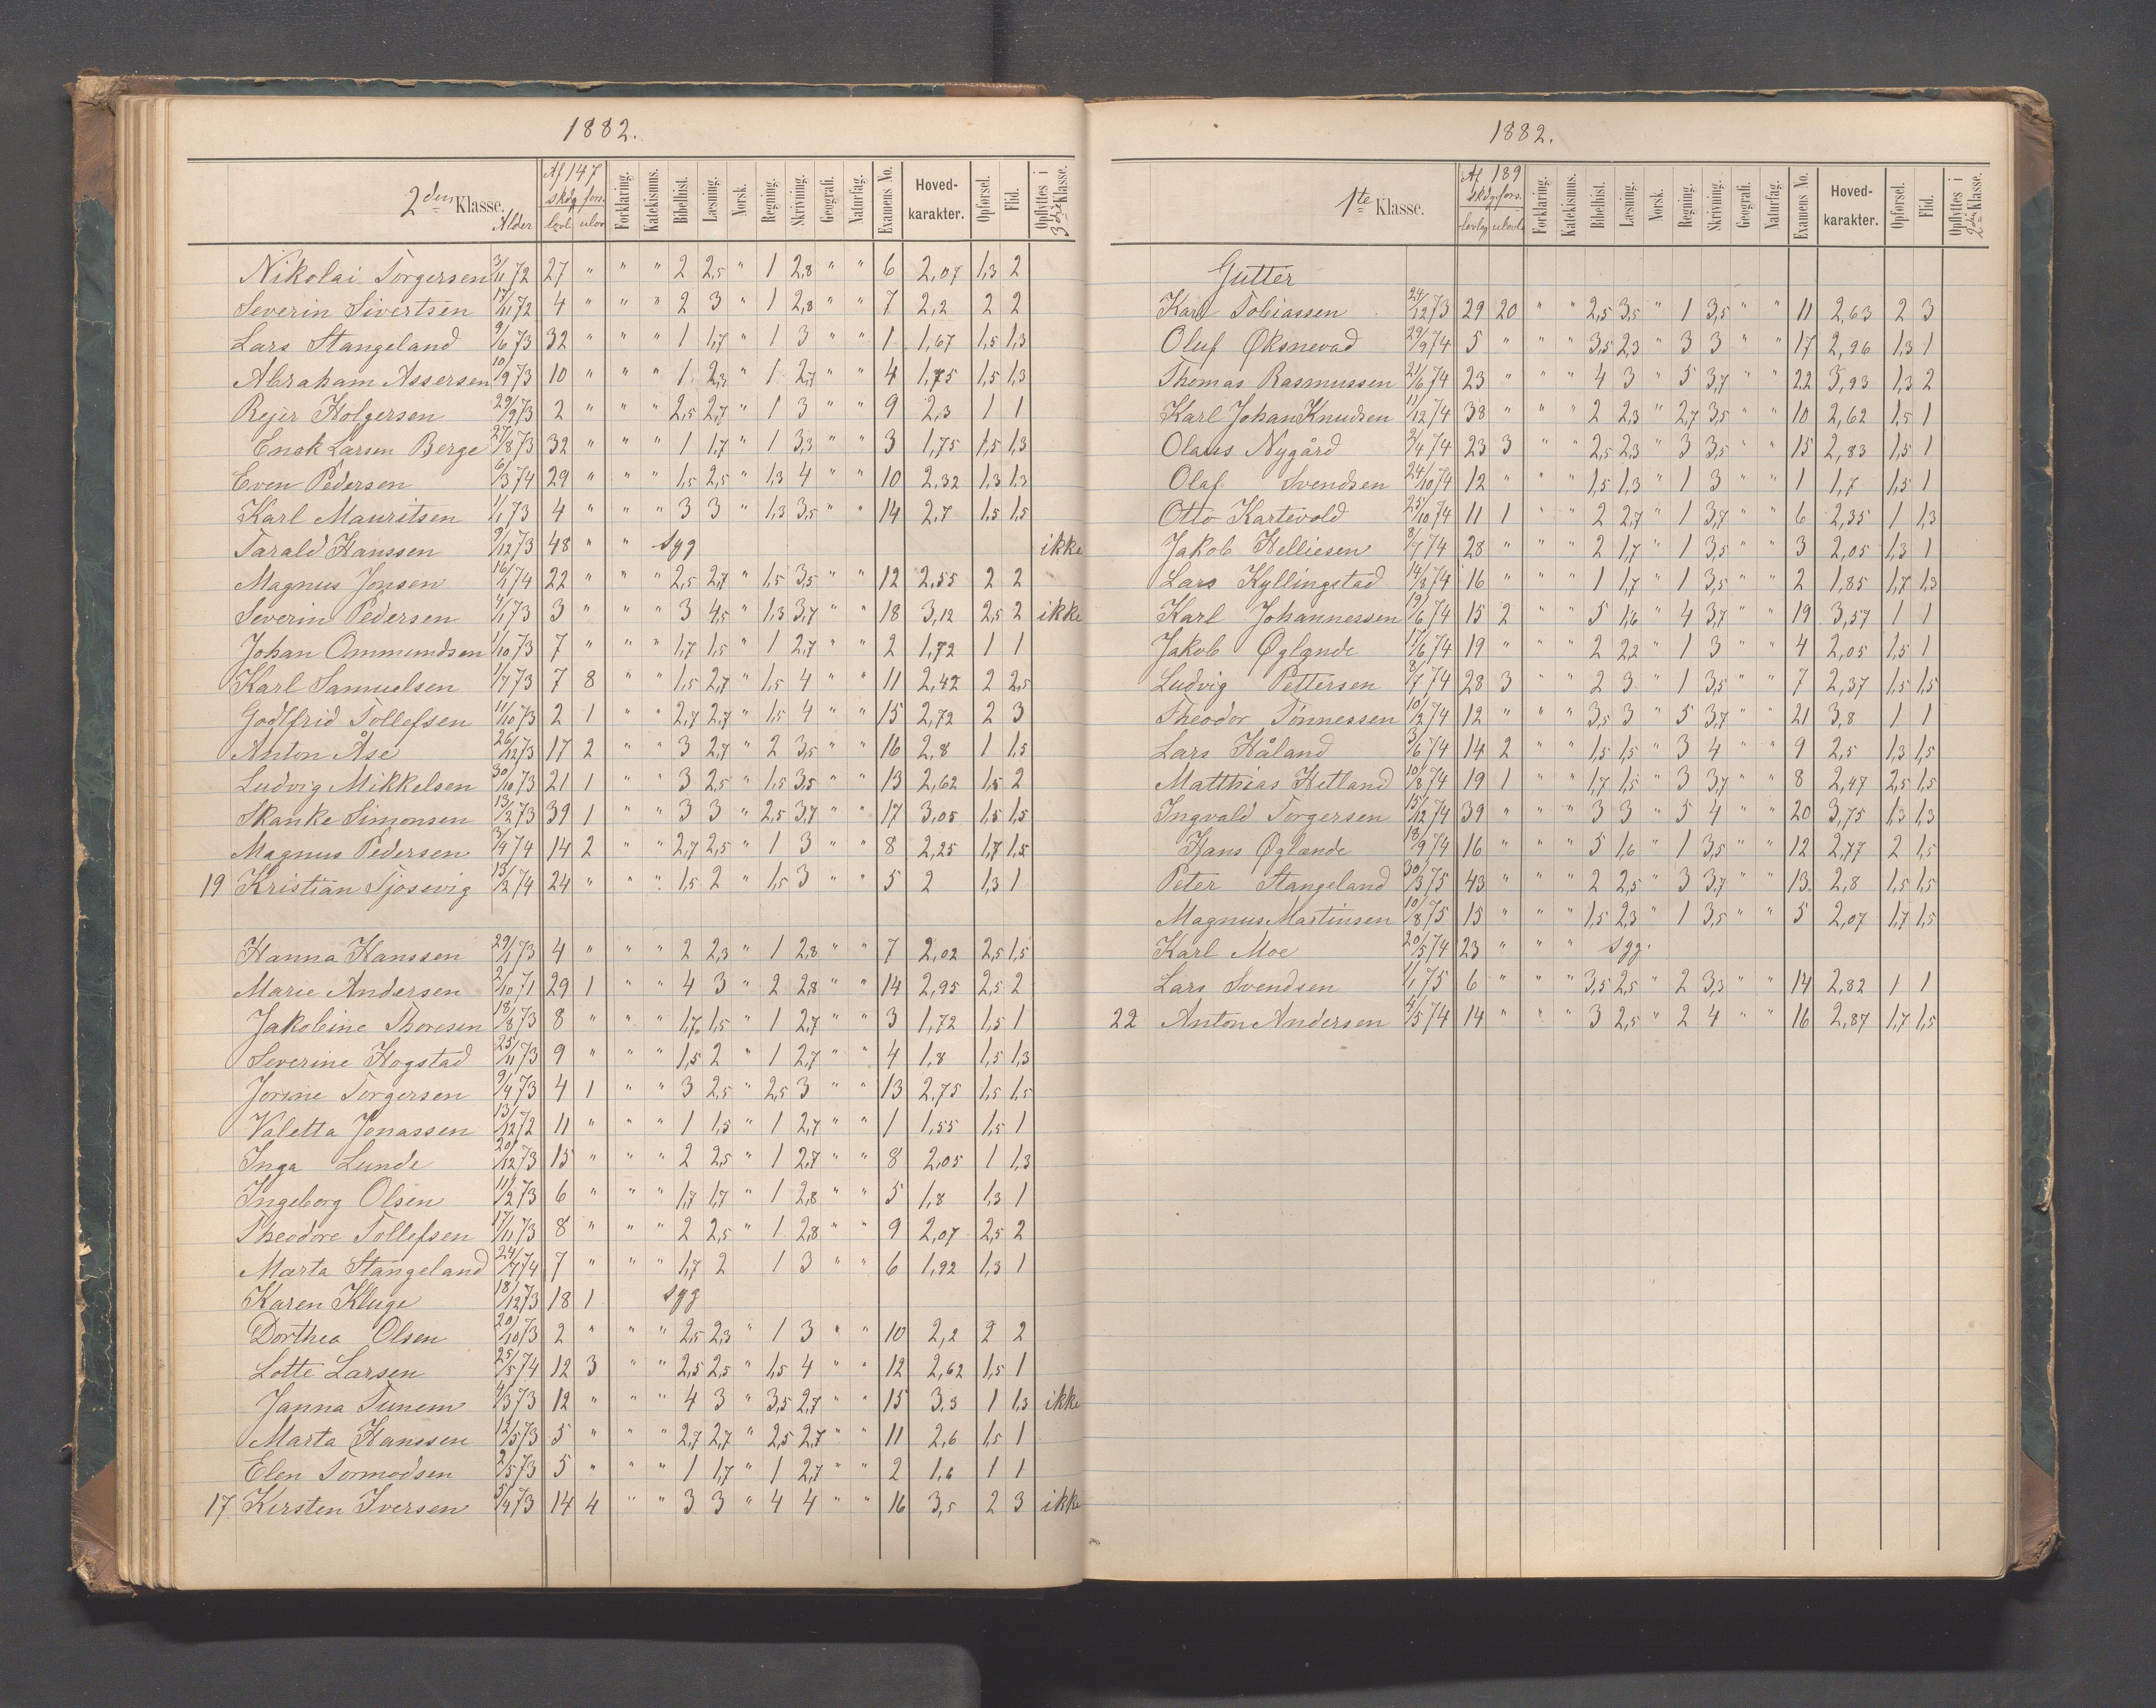 1882.
2den Klasse. Alder Af 147 skdg fors. lovl ulovl Forklaring. Katekismus. Bibelhist. Læsning. Norsk. Regning. Skrivning. Geografi. Naturfag. Examens No. Hoved-karakter. Opførsel. Flid. Opflyttes i 3die Klasse.
Nikolai Torgersen 3/11 72 27 " " " 2 2,5 " 1 2,8 " " 6 2,07 1,3 2
Severin Sivertsen 17/11 72 4 " " " 2 3 " 1 2,8 " " 7 2,2 2 2
Lars Stangeland 9/6 73 32 " " " 1 1,7 " 1 3 " " 1 1,67 1,5 1,3
Abraham Assersen 10/9 73 10 " " " 1 2,3 " 1 2,7 " " 4 1,75 1,5 1,3
Rejer Holgersen 29/9 73 2 " " " 2,5 2,7 " 1 3 " " 9 2,3 1 1
Enok Larsen Berge 27/8 73 32 " " " 1 1,7 " 1 3,3 " " 3 1,75 1,5 1,3
Even Pedersen 6/3 74 29 " " " 1,5 2,5 " 1,3 4 " " 10 2,32 1,3 1,3
Karl Mauritsen 1/1 73 4 " " " 3 3 " 1,3 3,5 " " 14 2,7 1,5 1,5
Tarald Hanssen 9/12 73 48 " " syg ikke
Magnus Jonsen 16/1 74 22 " " " 2,5 2,7 " 1,5 3,5 " " 12 2,55 2 2
Severin Pedersen 4/1 73 3 " " " 3 4,5 " 1,3 3,7 " " 18 3,12 2,5 2 ikke
Johan Ommundsen 1/10 73 7 " " " 1,7 1,5 " 1 2,7 " " 2 1,72 1 1
Karl Samuelsen 1/7 73 7 8 " " 1,5 2,7 " 1,5 4 " " 11 2,42 2 2,5
Godtfrid Tollefsen 11/10 73 2 1 " " 2,7 2,7 " 1,5 4 " " 15 2,72 2 3
Anton Åse 26/12 73 17 2 " " 3 2,7 " 2 3,5 " " 16 2,8 1 1,5
Ludvig Mikkelsen 30/10 73 21 1 " " 3 2,5 " 1,5 3,5 " " 13 2,62 1,5 2
Skanke Simonsen 13/2 73 39 1 " " 3 3 " 2,5 3,7 " " 17 3,05 1,5 1,5
Magnus Pedersen 3/4 74 14 2 " " 2,7 2,5 " 1 3 " " 8 2,25 1,7 1,5
19 Kristian Tjosevig 13/2 74 24 " " " 1,5 2 " 1,5 3 " " 5 2 1,3 1
Hanna Hanssen 29/1 73 4 " " " 2 2,3 " 1 2,8 " " 7 2,02 2,5 1,5
Marie Andersen 2/10 71 29 1 " " 4 3 " 2 2,8 " " 14 2,95 2,5 2
Jakobine Thoresen 18/8 73 8 " " " 1,7 1,5 " 1 2,7 " " 3 1,72 1,5 1
Severine Hogstad 25/11 73 9 " " " 1,5 2 " 1 2,7 " " 4 1,8 1,5 1,3
Jorine Torgersen 9/4 73 4 1 " " 3 2,5 " 2,5 3 " " 13 2,75 1,5 1,5
Valetta Jonassen 13/12 72 11 " " " 1 1,5 " 1 2,7 " " 1 1,55 1,5 1
Inga Lunde 20/12 73 15 " " " 2 2,5 " 1 2,7 " " 8 2,05 1 1,3
Ingeborg Olsen 11/2 73 6 " " " 1,7 1,7 " 1 2,8 " " 5 1,8 1,3 1
Theodore Tollefsen 17/11 73 8 " " " 2 2,5 " 1 2,8 " " 9 2,07 2,5 2
Marta Stangeland 24/7 74 7 " " " 1,7 2 1 3 " " 6 1,92 1,3 1
Karen Kluge 18/12 73 18 1 syg
Dorthea Olsen 20/10 73 2 " " " 2,5 2,3 " 1 3 " " 10 2,2 2 2
Lotte Larsen 25/5 74 12 3 " " 2,5 2,5 " 1,5 4 " " 12 2,62 1,5 1
Janna Tunem 4/3 73 12 " " " 4 3 " 3,5 2,7 " " 15 3,3 1 1,3 ikke
Marta Hanssen 12/5 73 5 " " " 2,7 2,7 " 2,5 2,7 " " 11 2,6 1,5 1
Elen Tormodsen 2/5 73 5 " " " 1 1,7 " 1 2,7 " " 2 1,6 1 1
17 Kersten Iversen 5/4 73 14 4 " " 3 3 " 4 4 " " 16 3,5 2 3 ikke
1882.
1te Klasse. Af 189 skdg. fors. lovlg ulovl. Forklaring. Katekismus. Bibelhist. Læsning. Norsk. Regning. Skrivning. Geografi. Naturfag. Examens No. Hoved-karakter. Opførsel. Flid. Opflyttes i 2den Klasse.
Gutter
Karl Tobiassen 24/12 73 29 20 " " 2,5 3,5 " 1 3,5 " " 11 2,63 2 3
Oluf Øksnevad 29/9 74 5 " " " 3,5 2,3 " 3 3 " " 17 2,96 1,3 1
Thomas Rasmussen 21/6 74 23 " " " 4 3 " 5 3,7 " " 22 3,93 1,3 2
Karl Johan Knudsen 11/12 74 38 " " " 2 2,3 " 2,7 3,5 " " 10 2,62 1,5 1
Olaus Nygård 9/4 74 23 3 " " 2,5 2,3 " 3 3,5 " " 15 2,83 1,5 1
Olaf Svendsen 24/10 74 12 " " " 1,5 1,3 " 1 3 " " 1 1,7 1,5 1
Otto Kartevold 25/10 74 11 1 " " 2 2,7 " 1 3,7 " " 6 2,35 1 1,3
Jakob Helliesen 8/7 74 28 " " " 2 1,7 " 1 3,5 " " 3 2,05 1,3 1
Lars Kyllingstad 14/8 74 16 " " " 1 1,7 " 1 3,5 " " 2 1,85 1,7 1,3
Karl Johannessen 19/6 74 15 2 " " 5 1,6 " 4 3,7 " " 19 3,57 1 1
Jakob Øglænde 17/6 74 19 " " " 2 2,2 " 1 3 " " 4 2,05 1,5 1
Ludvig Pettersen 8/7 74 28 3 " " 2 3 " 1 3,5 " " 7 2,37 1,5 1,5
Theodor Tønnessen 10/2 74 12 " " " 3,5 3 " 5 3,7 " " 21 3,8 1 1
Lars Håland 3/6 74 14 2 " " 1,5 1,5 " 3 4 " " 9 2,5 1,3 1,5
Matthias Hetland 10/8 74 19 1 " " 1,7 1,5 " 3 3,7 " " 8 2,47 2,5 1,5
Ingvald Torgersen 15/12 74 39 " " " 3 3 " 5 4 " " 20 3,75 1,3 1,3
Hans Øglænde 18/9 74 16 " " " 5 1,6 " 1 3,5 " " 12 2,77 2 1,5
Peter Stangeland 30/3 75 43 " " " 2 2,5 " 3 3,7 " " 13 2,8 1,5 1,5
Magnus Martinsen 10/8 75 15 " " " 1,5 2,3 " 1 3,5 " " 5 2,07 1,7 1,5
Karl Moe 20/5 74 23 " " " syg.
Lars Svendsen 1/1 75 6 " " " 3,5 2,5 " 2 3,3 " " 14 2,82 1 1
22 Anton Andersen 4/5 74 14 " " " 3 2,5 " 2 4 " " 16 2,87 1,7 1,5